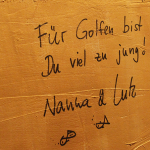 Für Golfen bist
Du viel zu jung!
Nanna & Lutz